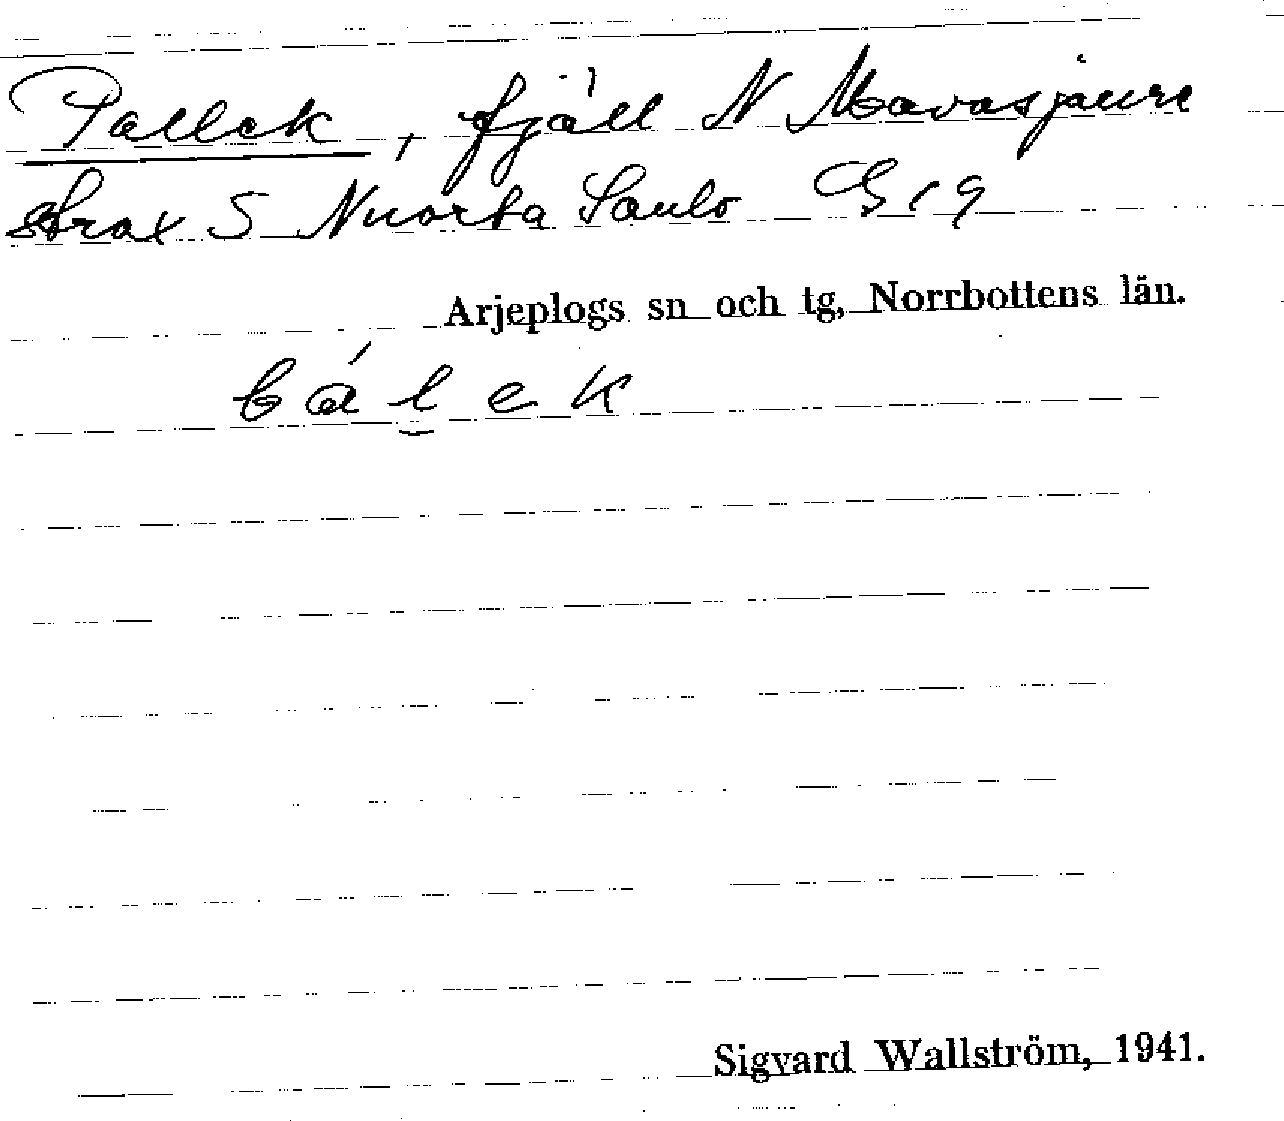 Pallek, fjäll N Mavasjaure
strax S Nuorta Saulo G 19
Arjeplogs sn och tg, Norrbottens län.
bál̮ek
Sigvard Wallström, 1941.